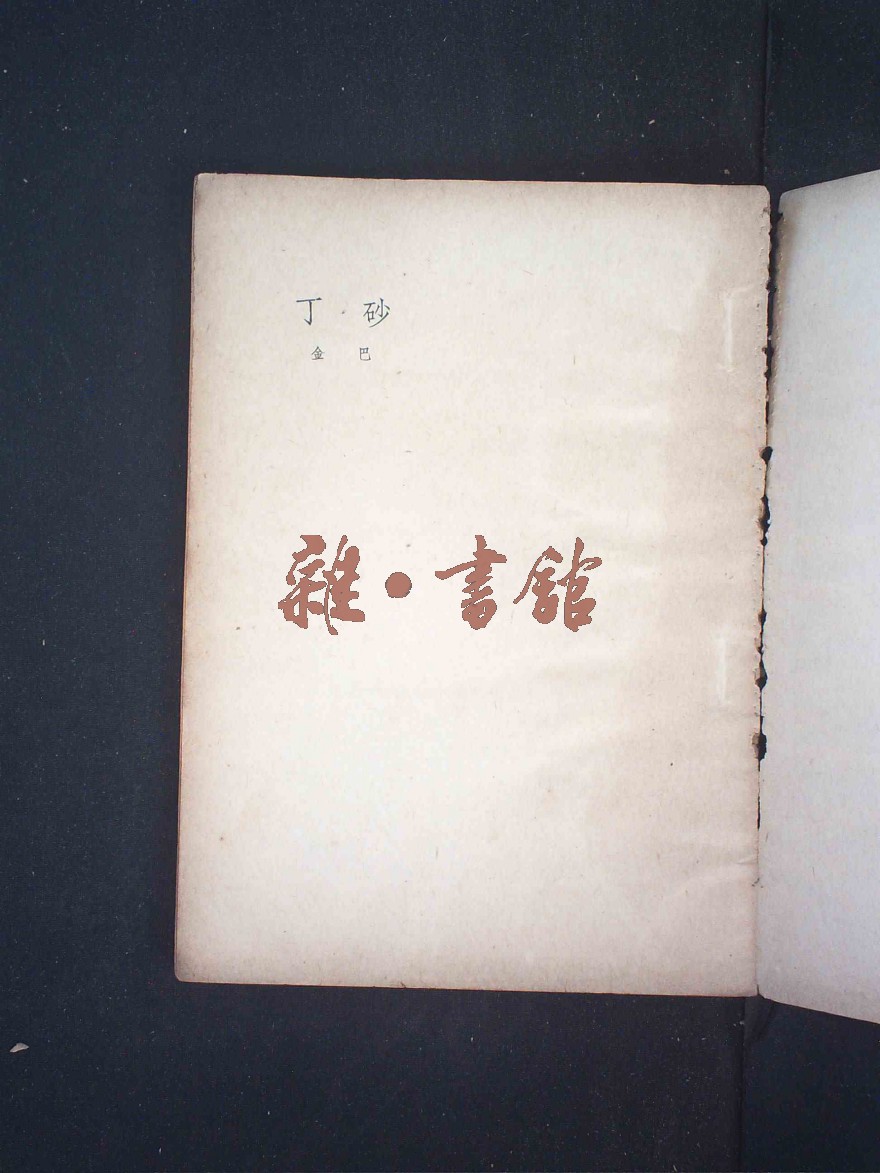 丁 砂
金 巴
雜·書館